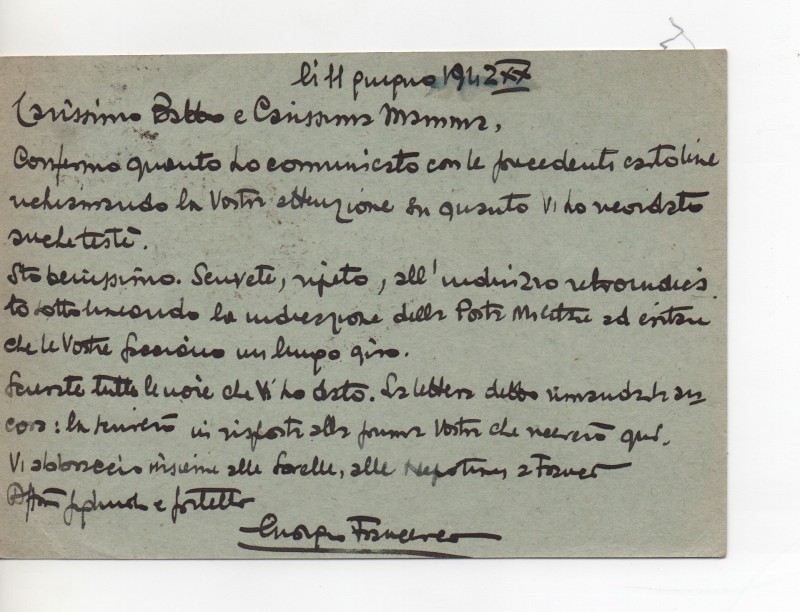 li 11 giugno 1942 XX
Carissimo Babbo e Carissima Mamma,
Confermo quanto ho comunicato con le precedenti cartoline
richiamando la Vostra attenzione su quanto Vi ho ricordato
anche testè.
Sto benissimo. Scrivete, ripeto, all'indirizzo retroindica
to sottolineando la indicazione della Posta Militare ad evitare
che le Vostre facciano un lungo giro.
Scusate tutte le noie che Vi ho dato. La lettera debbo rimandarla an
cora: la scriverò in risposta alla prima Vostra che riceverò qui.
Vi abbraccio insieme alle Sorelle, alle Nepotines e
Aff.mo figliuolo e fratello
Francesco